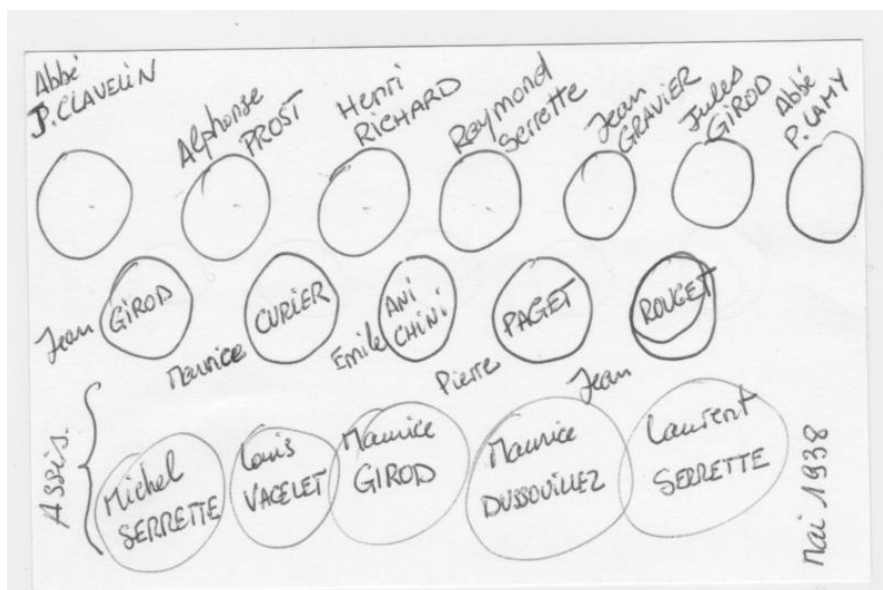 Abbé
P. CLAVELIN
Alphonse
PROST
Henri
RICHARD
Raymond
Serrette
Jean
GRAVIER
Jules
GIROD
Abbé
P. LAMY
Jean GIROD
Maurice CURLER
Emile ANI
CHINI
Pierre PAGET
Jean ROUGET
Assis.
Michel
SERRETTE
Louis
VACELET
Maurice
GIROD
Maurice
DUSSOUILLEZ
Laurent
SERRETTE
Mai 1938